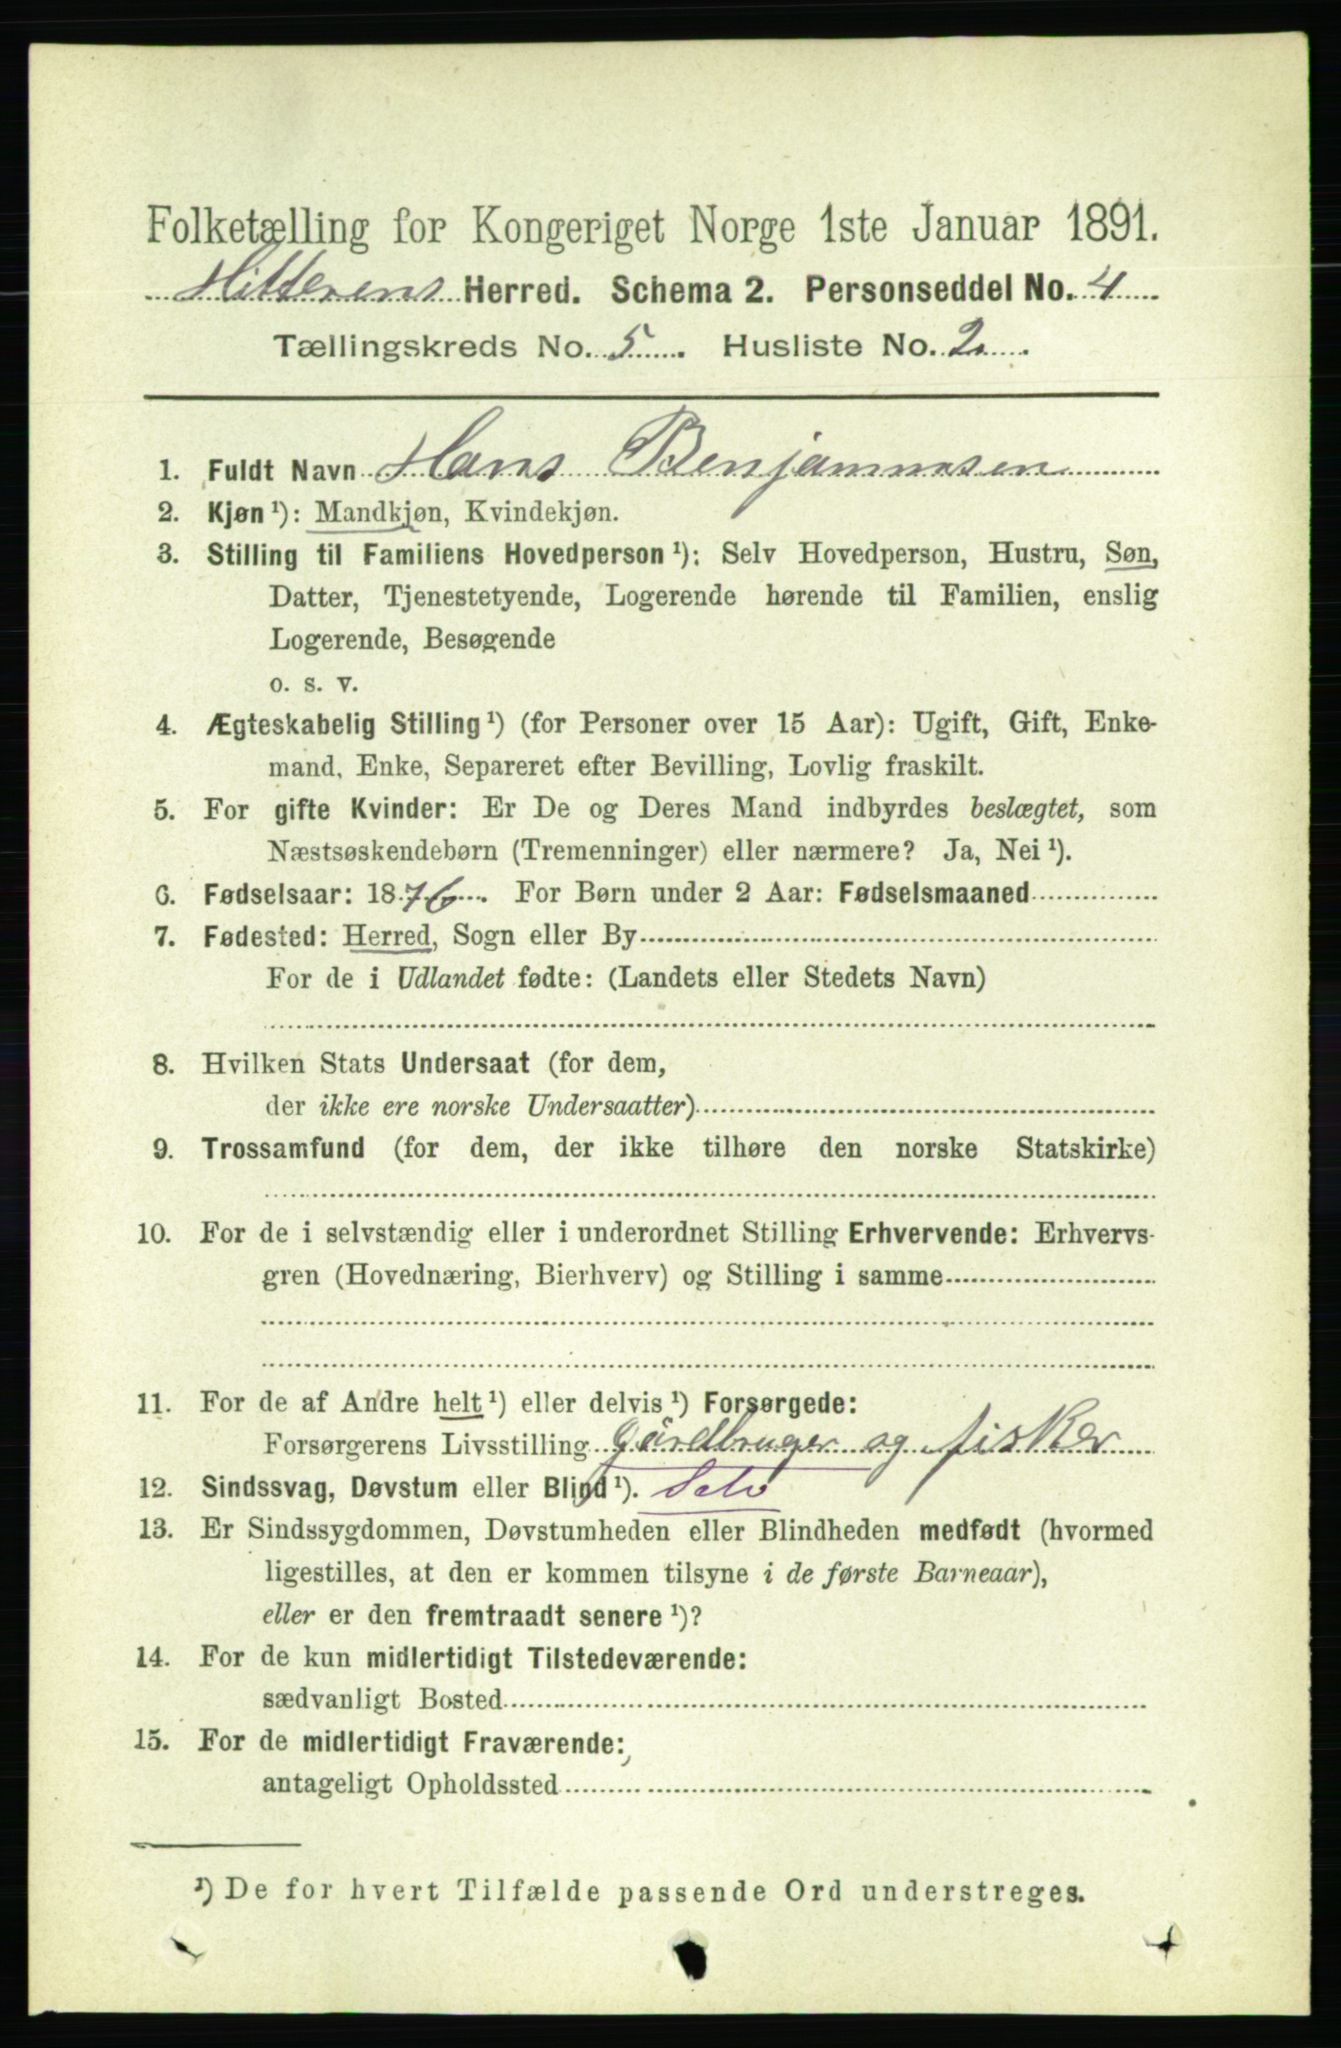 Folketælling for Kongeriget Norge 1ste Januar 1891.
Hitterens Herred. Schema 2. Personseddel No. 4
Tællingskreds No. 5 Husliste No. 2.
1. Fuldt Navn Hans Benjaminsen
2. Kjøn ¹): Mandkjøn, Kvindekjøn.
3. Stilling til Familiens Hovedperson ¹): Selv Hovedperson, Hustru, Søn,
Datter, Tjenestetyende, Logerende hørende til Familien, enslig
Logerende, Besøgende
o. s. v.
4. Ægteskabelig Stilling ¹) (for Personer over 15 Aar): Ugift, Gift, Enke-
mand, Enke, Separeret efter Bevilling, Lovlig fraskilt.
5. For gifte Kvinder: Er De og Deres Mand indbyrdes beslægtet, som
Næstsøskendebørn (Tremenninger) eller nærmere? Ja, Nei ¹).
6. Fødselsaar: 1876. For Børn under 2 Aar: Fødselsmaaned
7. Fødested: Herred, Sogn eller By
For de i Udlandet fødte: (Landets eller Stedets Navn)
8. Hvilken Stats Undersaat (for dem,
der ikke ere norske Undersaatter)
9. Trossamfund (for dem, der ikke tilhøre den norske Statskirke)
10. For de i selvstændig eller i underordnet Stilling Erhvervende: Erhvervs-
gren (Hovednæring, Bierhverv) og Stilling i samme
11. For de af Andre helt ¹) eller delvis ¹) Forsørgede:
Forsørgerens Livsstilling Gårdbruger og fisker
12. Sindssvag, Døvstum eller Blind ¹). Selv
13. Er Sindssygdommen, Døvstumheden eller Blindheden medfødt (hvormed
ligestilles, at den er kommen tilsyne i de første Barneaar),
eller er den fremtraadt senere ¹)?
14. For de kun midlertidigt Tilstedeværende:
sædvanligt Bosted
15. For de midlertidigt Fraværende:
antageligt Opholdssted
¹) De for hvert Tilfælde passende Ord understreges.